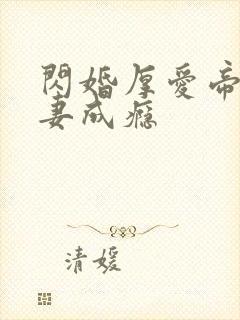 閃婚厚愛帝
妻成瘾
清媛